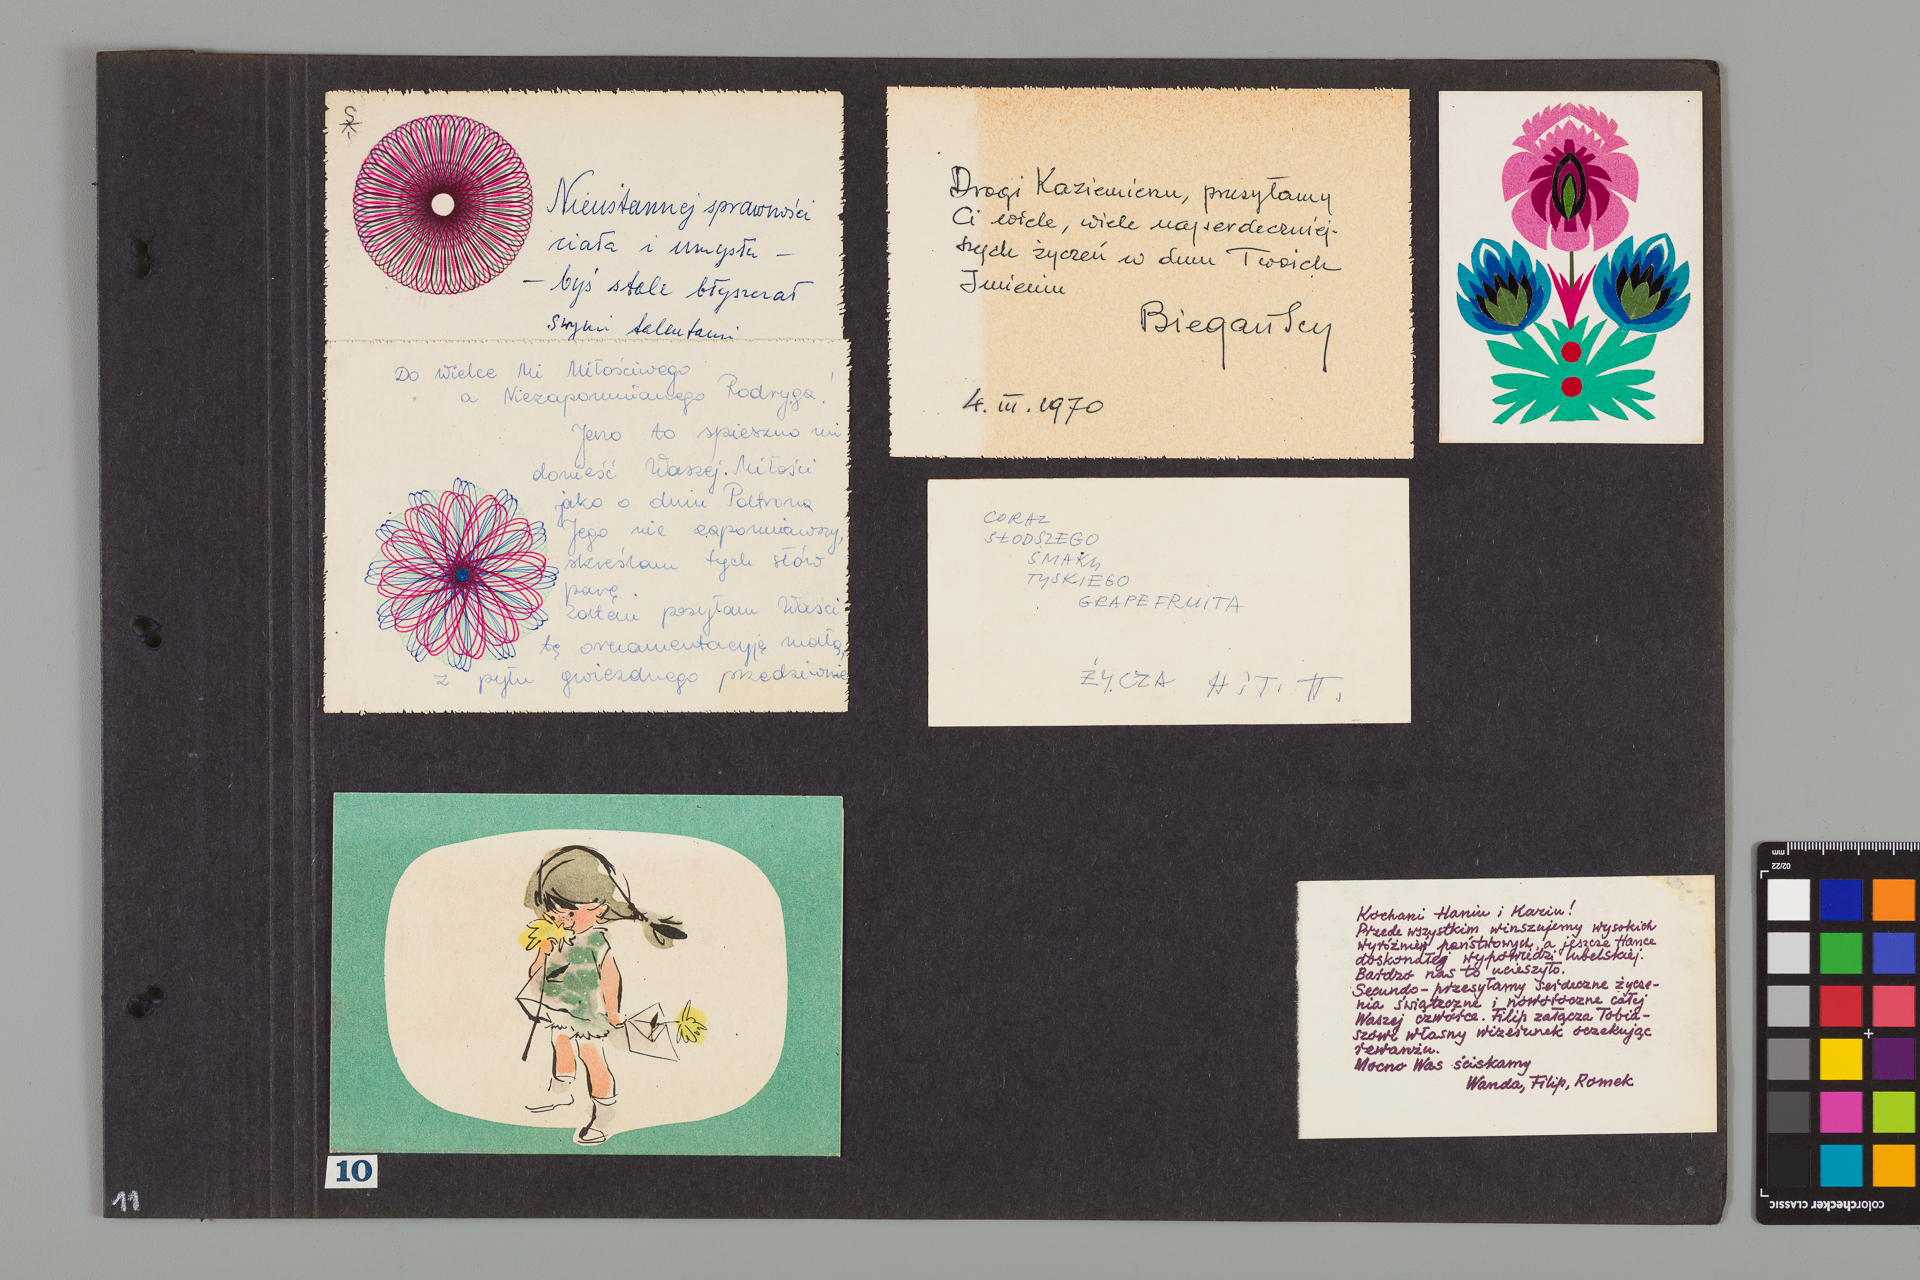 Nieustannej sprawności
ciała i umysłu –
– byś stale błyszczał
swymi talentami
Do Wielce Mi Miłościwego
a Niezapomnianego Rodryga!
Jeno to spieszno mi
donieść Waszej Miłości
jako o dniu Patrona
Jego nie zapomniawszy,
skreślam tych słów
parę.
Zatem posyłam Waści
tę ornamentacyję małą,
z pyłu gwiezdnego przedziwnie
Drogi Kazimierzu, przesyłamy
Ci wiele, wiele najserdeczniej-
szych życzeń w dniu Twoich
Imienin
Biegańscy
4. III. 1970
CORAZ
SŁODSZEGO
SMAKU
TYSKIEGO
GRAPEFRUITA
ŻYCZĄ H i T. T.
Kochani Haniu i Kaziu!
Przede wszystkim winszujemy wysokich
wyróżnień państwowych, a jeszcze Hance
doskonałej wypowiedzi lubelskiej.
Bardzo nas to ucieszyło.
Secundo – przesyłamy serdeczne życze-
nia świąteczne i noworoczne całej
Waszej czwórce. Filip załącza Tobia-
szowi własny wizerunek oczekując
rewanżu.
Mocno Was ściskamy
Wanda, Filip, Romek
10
11
mm
02/22
colorchecker CLASSIC